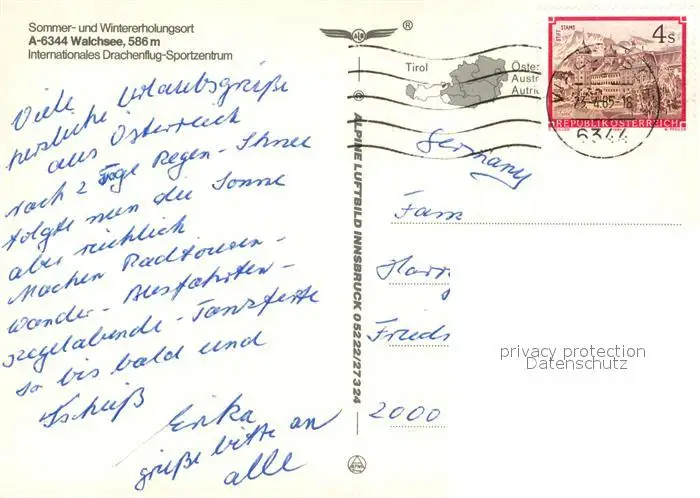 Sommer- und Wintererholungsort
A-6344 Walchsee, 586 m
Internationales Drachenflug-Sportzentrum
Viele Urlaubsgrüße
herzliche Grüße
aus Österreich
nach 2 Tage Regen - Schnee
folgte nun die Sonne
aber reichlich
Machen Radtouren -
wander - Busfahrten -
kegelabende - Tanzfeste
so bis bald und
Tschüß
Erika
grüße bitte an
alle
®
Tirol
® ALPINE LUFTBILD INNSBRUCK 05222/27324
STIFT STAMS
4 S
REPUBLIK ÖSTERREICH
6344
Germany
Fam
Harr
Frieds
2000
privacy protection
Datenschutz